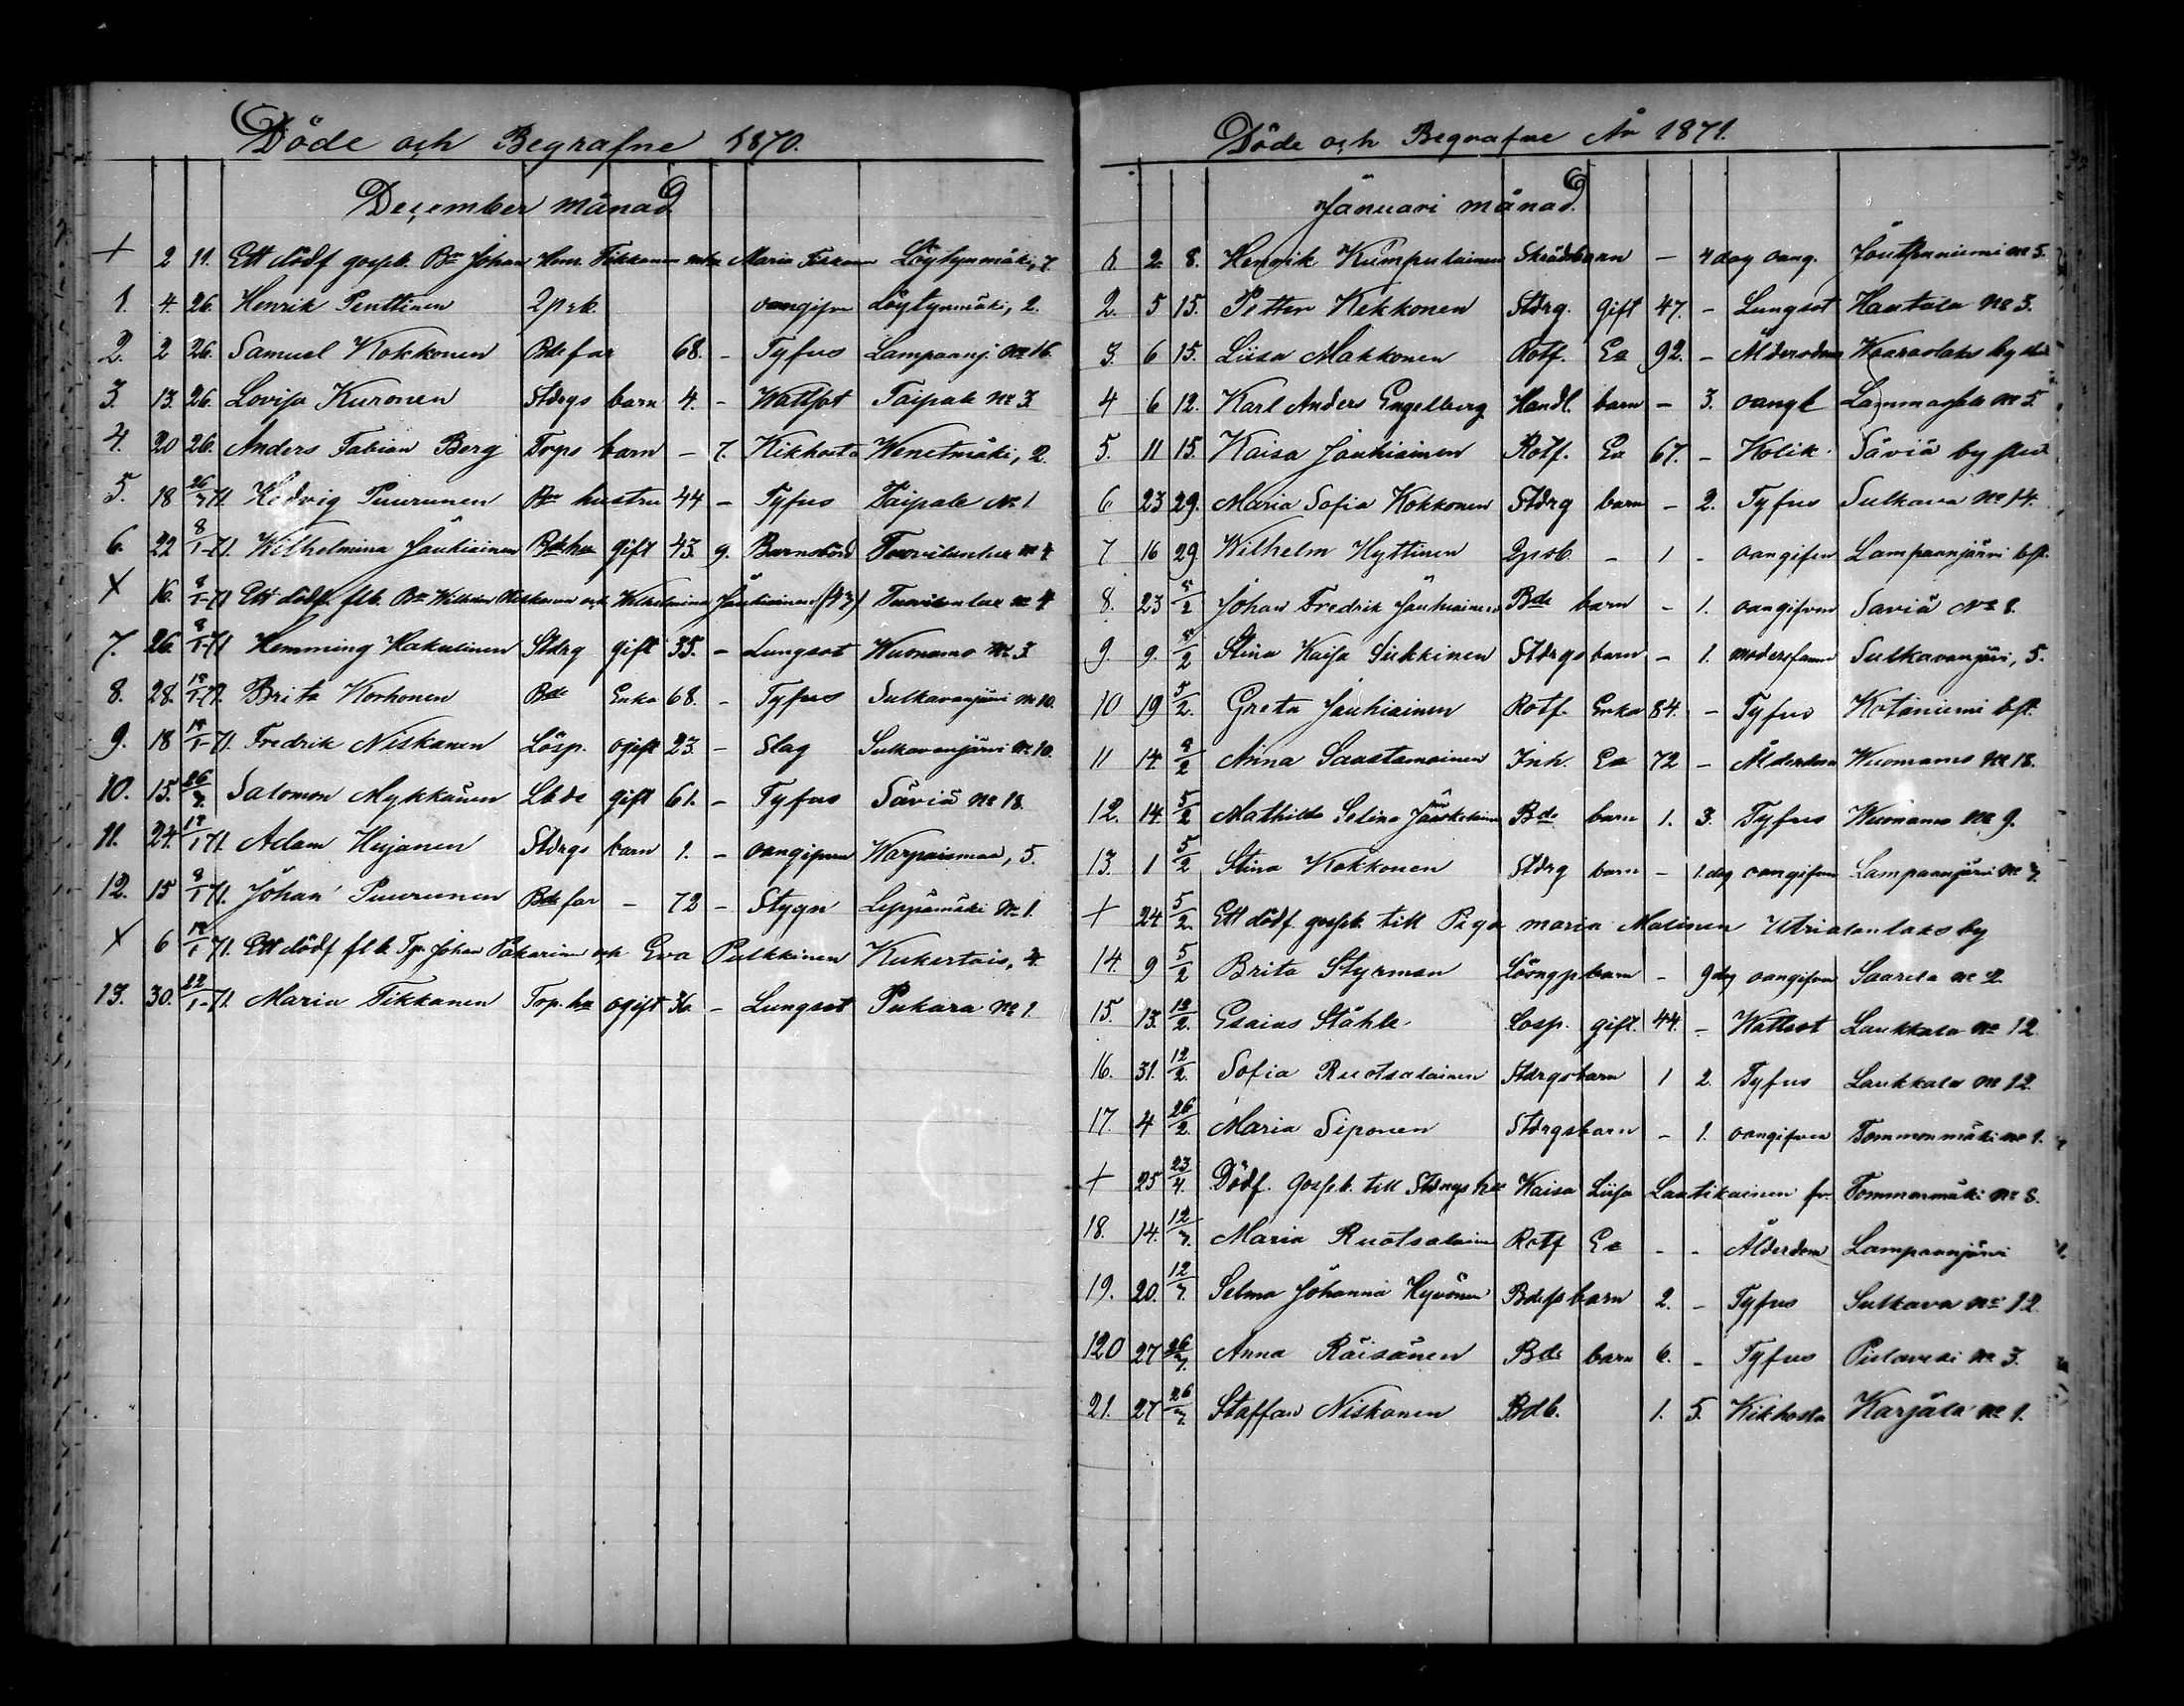 Döde och Begrafne 1870.
December månad
+ 2 11. Ett dödf gosseb. Bn Johan Henr. Tikkanen Maria Tikkanen Löytynmäki, 7.
1. 4. 26. Henrik Penttinen oangifvn Löytynmäki, 2.
2. 2 26. Samuel Kokkonen Bdefar 68. - Tyfus Lampaanj. No 16.
3. 13. 26. Lovisa Kuronen Stdrgs barn 4. - Wattsot Taipale No 3.
4. 20 26. Anders Fabian Berg Torps barn - 7. Kikhosta Wenetmäki, 2.
5. 18 26/3 71. Hedvig Puurunen Bn hustru 44 - Tyfus Taipale No 1
6. 22 8/1-71. Wilhelmina Jauhiainen Bdehu gift 43. 9. Barnsbörd No 4
X 16. 8/1-71 Ett dödf. flb. Bn Wilhelm och Wilhelmina Jauhiainen (43) No 4
7. 26. 8/1-71 Hemming Hakulinen Stdrg gift 35. - Lungsot Wuonamo No 3.
8. 28. Brita Korhonen Bde Enka 68. - Tyfus Sulkavanjärvi No 10.
9. 18 Fredrik Niskanen Lösp. ogift 23. - Slag Sulkavanjärvi No 10.
10. 15. 26/3. Salomon Mykkänen Lbde gift 61. - Tyfus Säviä No 18.
11. 24. Adam Heijanen Stdrgs barn 1. - oangifven Warpaismaa, 5.
12. 15 8/1 71. Johan Puurunen Bdefar - 72 - Stygn Leppämäki No 1.
X 6 Ett dödf flb. Tp. Johan Pakarinen och Eva Pulkkinen Kukertais, 4.
13. 30. 22/1-71. Maria Tikkanen Torp.hu ogift 36. - Lungsot Pukara No 1.
Döde och Begrafne År 1871.
Januari månad.
1. 2. 8. Henrik Kumpulainen Skrädd barn - 4 dag oang. Joutsenniemi No 5.
2. 5 15. Petter Kekkonen Stdrg. gift 47. - Lungsot Hautala No 3.
3. 6 15. Liisa Makkonen Rotf. Ea 92. - Ålderdom Koaraslaks by
4 6 12. Karl Anders Engelberg Handl. barn - 3. oangl Lammassalo No 5.
5. 11 15. Kaisa Jauhiainen Rotf. Ea 67. - Kolik Säviä by
6 23 29. Maria Sofia Kokkonen Stdrg barn - 2. Tyfus Sulkava No 14.
7. 16 29 Wilhelm Hyttinen - 1 - oangifven Lampaanjärvi bf.
8. 23 5/2 Johan Fredrik Jauhiainen Bde barn - 1. oangifven Säviä No 8.
9. 9. 5/2 Stina Kaisa Sikkinen Stdrgs barn - 1. Sulkavanjärvi, 5.
10 19 5/2. Greta Jauhiainen Rotf. Enka 84. - Tyfus Kotaniemi bf.
11 14. Anna Saastamoinen Inh. Ea 72 - Ålderdom Wuonamo No 18.
12. 14. 5/2 Mathilda Selina Jääskeläinen Bde barn 1. 3. Tyfus Wuonamo No 9.
13. 1 5/2 Stina Kokkonen Stdrg barn - 1. dag oangifven Lampaanjärvi No 7.
+ 24 5/2. Ett dödf. gosseb. till Piga Maria Malinen Utrialanlaks by
14. 9 5/2 Brita Styrman barn - 9 dag oangifven Saarela No 2.
15. 13. 12/2. Esaias Ståhle Losp. gift. 44. - Wattsot Laukkala No 12
16. 31. 12/2. Sofia Ruotsalainen Stdrgs barn 1 2. Tyfus Laukkala No 12.
17. 4 26/2. Maria Siponen Stdrgs barn - 1. oangifven Tommonmäki No 1.
+ 25 23/4. Dödf. gosseb. till Stdrgs hu Kaisa Liisa Laatikainen fr. Tommonmäki No 8.
18. 14. 12/3. Maria Ruotsalainen Rotf Ea - - Ålderdom Lampaanjärvi
19. 20. 12/3. Selma Johanna Hyvönen barn 2. - Tyfus Sulkava No 12.
120 27 26/3. Anna Räisänen Bde barn 6. - Tyfus Pielavesi No 3.
21. 27 26/3. Staffan Niskanen Bdb. 1. 5. Kikhosta Karjala No 1.